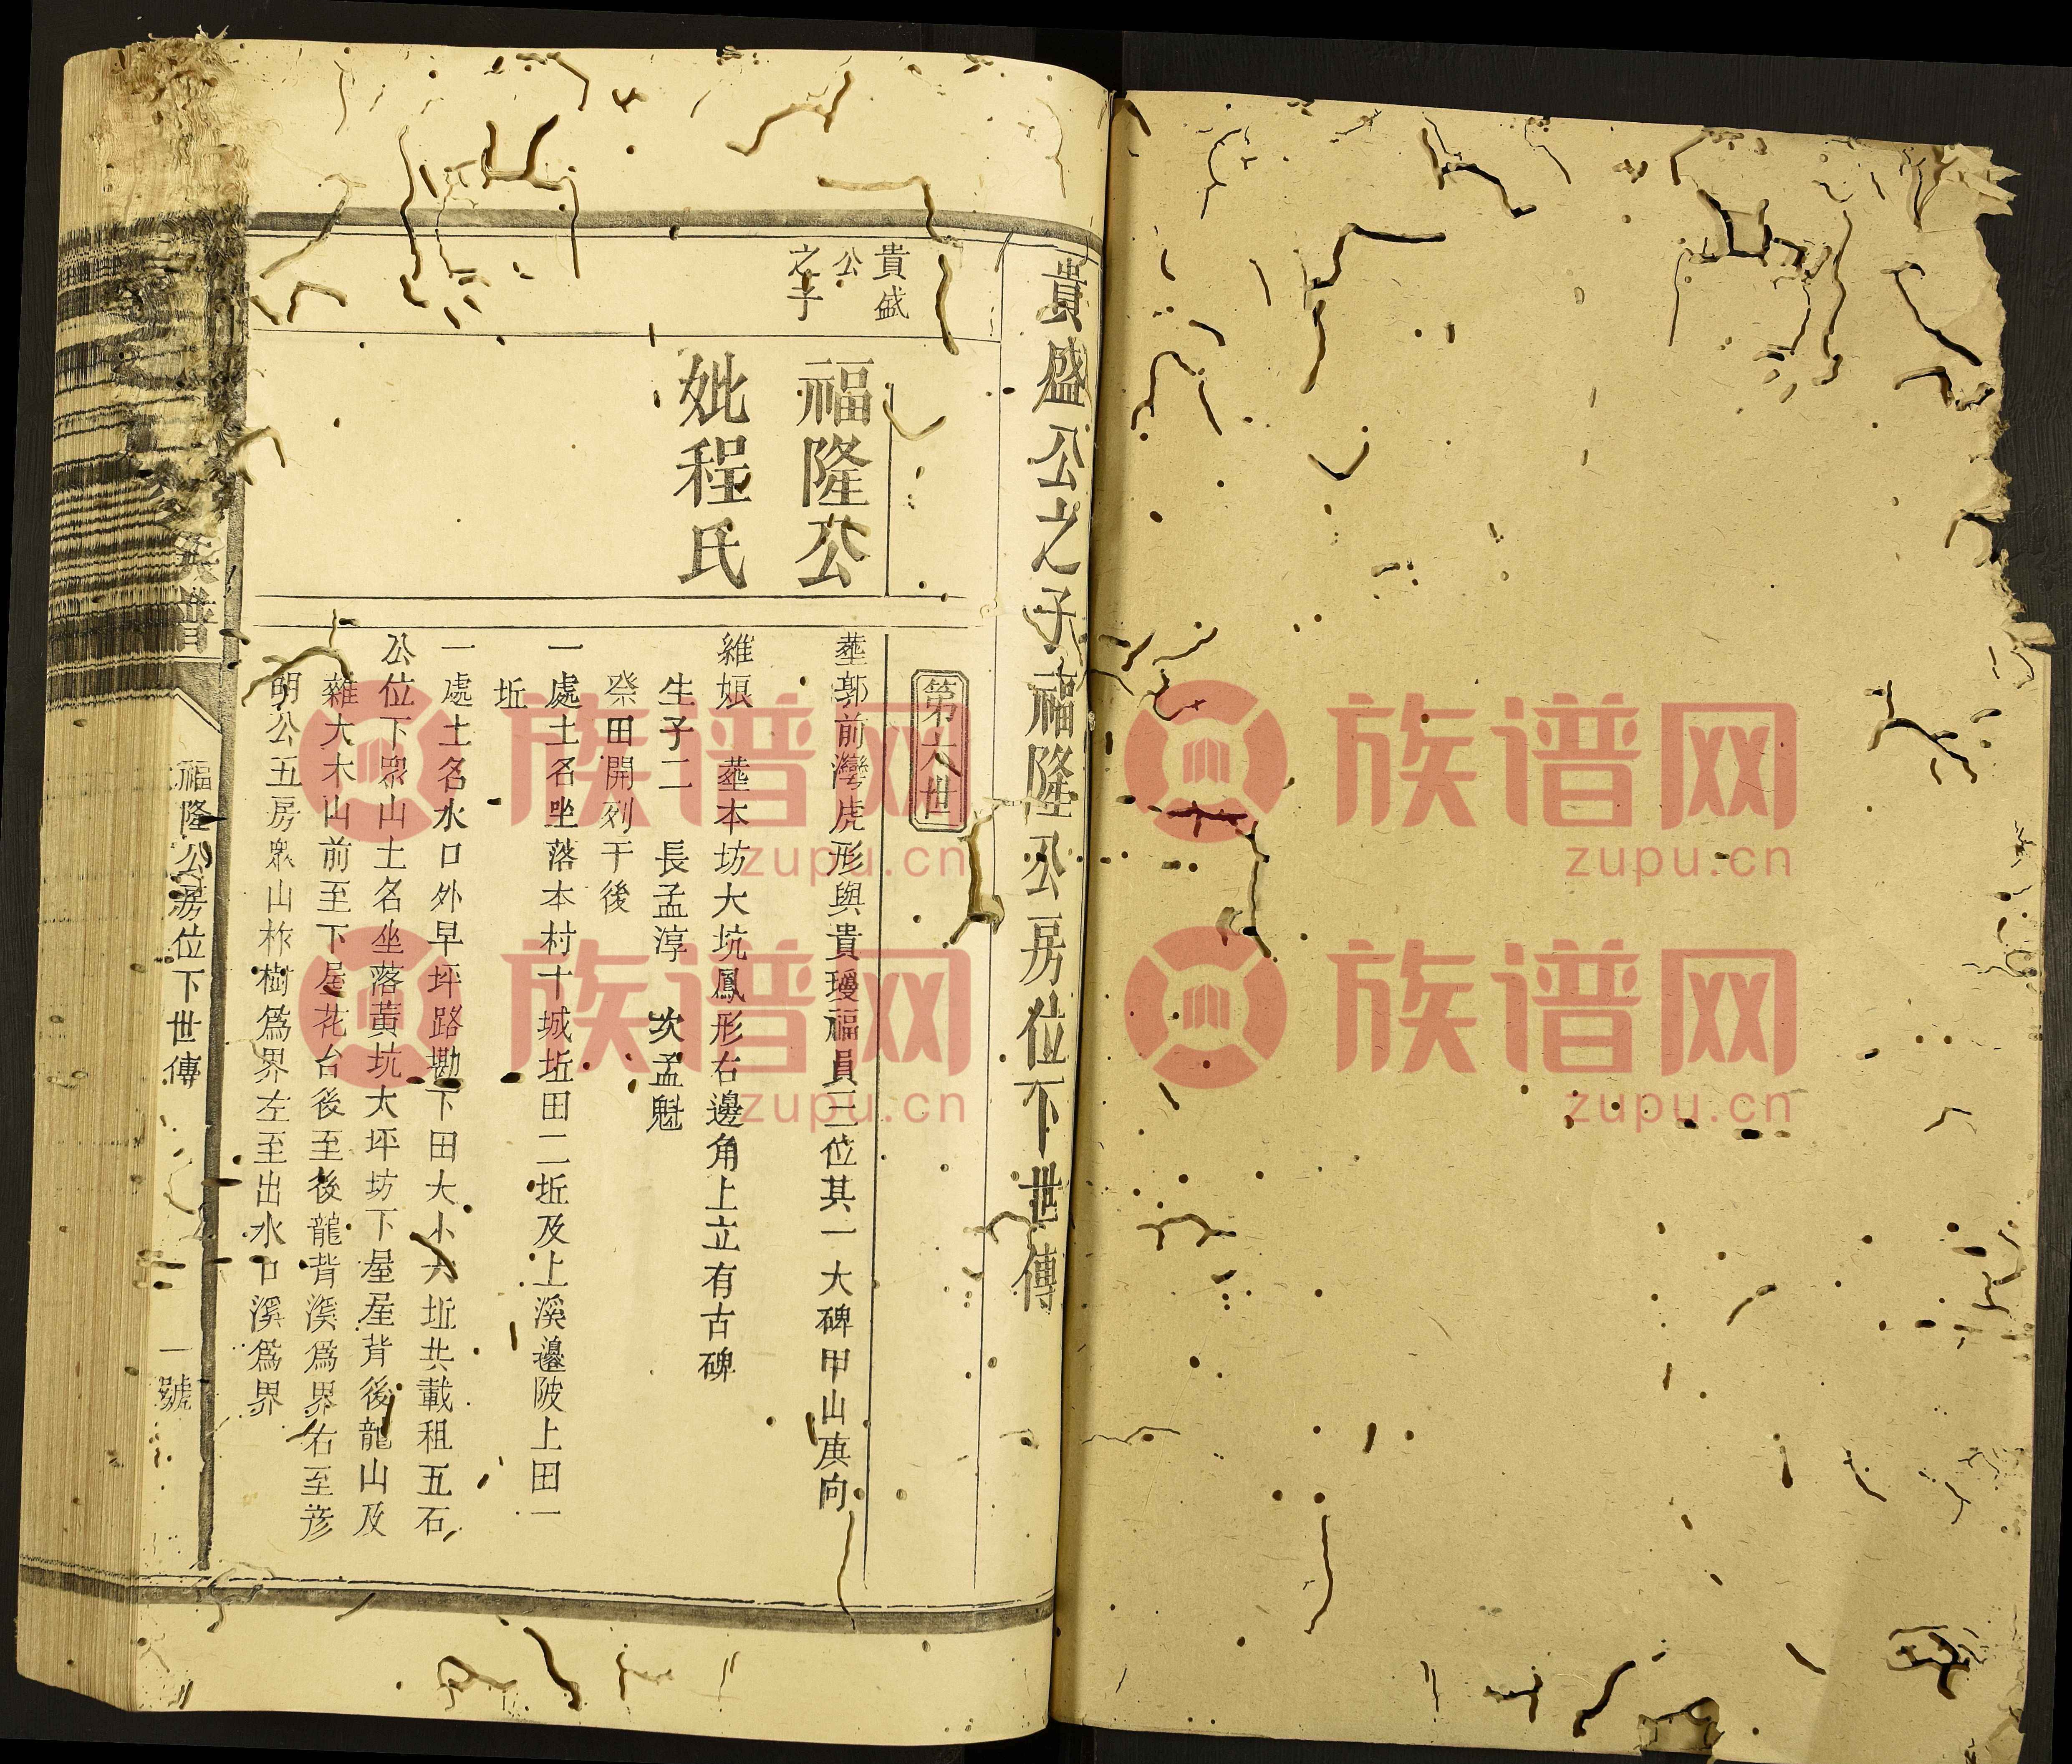 貴盛公之子福隆公房位下世傳
第六世
貴盛
公
之子
福隆公
妣程氏
塟郭前灣虎形與貴璦福員三位其一大碑甲山庚向
維娘 塟本坊大坑鳳形右邊角上立有古碑
生子二 長孟淳 次孟魁
祭田開列于後
一處土名坐落本村十城坵田二坵及上溪邊陂上田一
坵
一處土名水口外早坪路勘下田大小六坵共載租五石
公位下衆山土名坐落黃坑大坪坊下屋屋背後龍山及
雜大木山前至下屋花台後至後龍背漈爲界右至彦
明公五房衆山柞樹爲界左至出水口溪爲界
氏譜
福隆公房位下世傳
一號
族谱网
zupu.cn
族谱网
zupu.cn
族谱网
zupu.cn
族谱网
zupu.cn